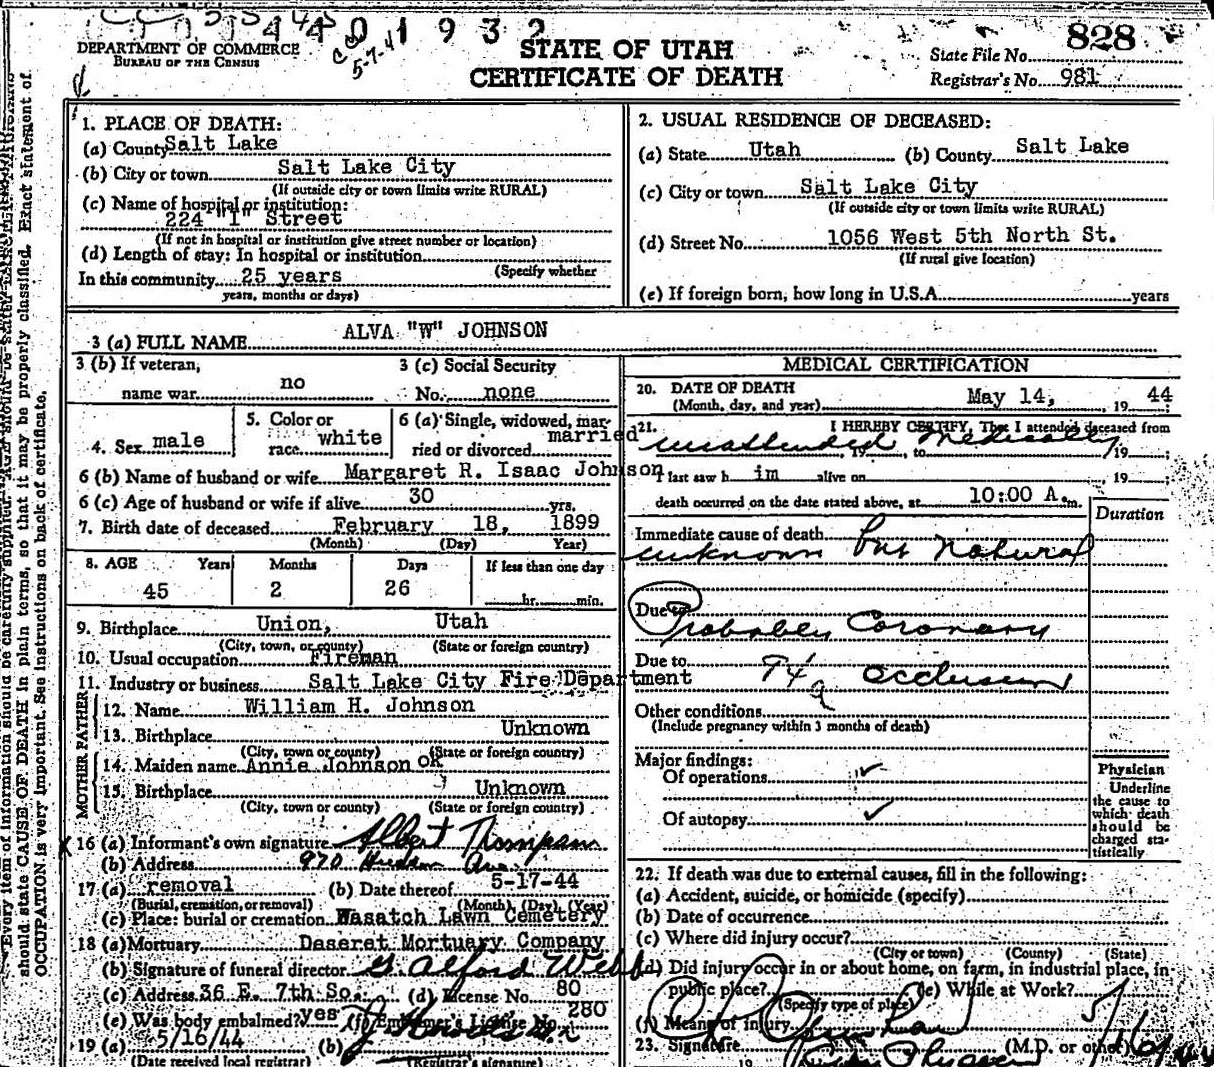 DEPARTMENT OF COMMERCE
BUREAU OF THE CENSUS
5-7-4
STATE OF UTAH
CERTIFICATE OF DEATH
State File No. 828
Registrar's No. 981
Every item of information should be carefully supplied. AGE should be
should state CAUSE OF DEATH in plain terms, so that it may be properly classified. Exact statement of
OCCUPATION is very important. See instructions on back of certificate.
1. PLACE OF DEATH:
(a) County Salt Lake
(b) City or town Salt Lake City
(If outside city or town limits write RURAL)
(c) Name of hospital or institution:
224 "I" Street
(If not in hospital or institution give street number or location)
(d) Length of stay: In hospital or institution
(Specify whether
In this community 25 years
years, months or days)
2. USUAL RESIDENCE OF DECEASED:
(a) State Utah (b) County Salt Lake
(c) City or town Salt Lake City
(If outside city or town limits write RURAL)
(d) Street No. 1056 West 5th North St.
(If rural give location)
(e) If foreign born, how long in U.S.A. years
3 (a) FULL NAME ALVA "W" JOHNSON
3 (b) If veteran,
name war no
3 (c) Social Security
No. none
4. Sex male
5. Color or
race white
6 (a) Single, widowed, mar-
ried or divorced married
6 (b) Name of husband or wife Margaret R. Isaac Johnson
6 (c) Age of husband or wife if alive 30 yrs.
7. Birth date of deceased February 18, 1899
(Month) (Day) Year)
8. AGE Years Months Days If less than one day
45 2 26 hr. min.
9. Birthplace Union, Utah
(City, town, or county) (State or foreign country)
10. Usual occupation Fireman
11. Industry or business Salt Lake City Fire Department
FATHER
12. Name William H. Johnson
13. Birthplace Unknown
(City, town or county) (State or foreign country)
MOTHER
14. Maiden name Annie Johnson OK
15. Birthplace Unknown
(City, town or county) (State or foreign country)
X 16 (a) Informant's own signature Albert Thompson
(b) Address 970 Ave.
17 (a) removal (b) Date thereof 5-17-44
(Burial, cremation, or removal) (Month), (Day), (Year)
(c) Place: burial or cremation Wasatch Lawn Cemetery
18 (a) Mortuary Deseret Mortuary Company
(b) Signature of funeral director G. Alford Webb
(c) Address 36 E. 7th So. (d) License No. 80
(e) Was body embalmed? yes (f) Embalmer's License No. 280
19 (a) 5/16/44 (b)
(Date received local registrar) (Registrar's signature)
MEDICAL CERTIFICATION
20. DATE OF DEATH
(Month, day, and year) May 14, 19 44
21. I HEREBY CERTIFY, That I attended deceased from
unattended medically, 19 , to , 19 ;
I last saw h im alive on , 19 ;
death occurred on the date stated above, at 10:00 A. m.
Duration
Immediate cause of death
unknown but natural
Due to
Probably Coronary
Due to 94a occlusion
Other conditions
(Include pregnancy within 3 months of death)
Major findings:
Of operations ✓
Of autopsy ✓
Physician
Underline
the cause to
which death
should be
charged sta-
tistically
22. If death was due to external causes, fill in the following:
(a) Accident, suicide, or homicide (specify)
(b) Date of occurrence
(c) Where did injury occur?
(City or town) (County) (State)
(d) Did injury occur in or about home, on farm, in industrial place, in
public place? (e) While at Work?
(Specify type of place)
(f) Means of injury
23. Signature (M.D. or other)